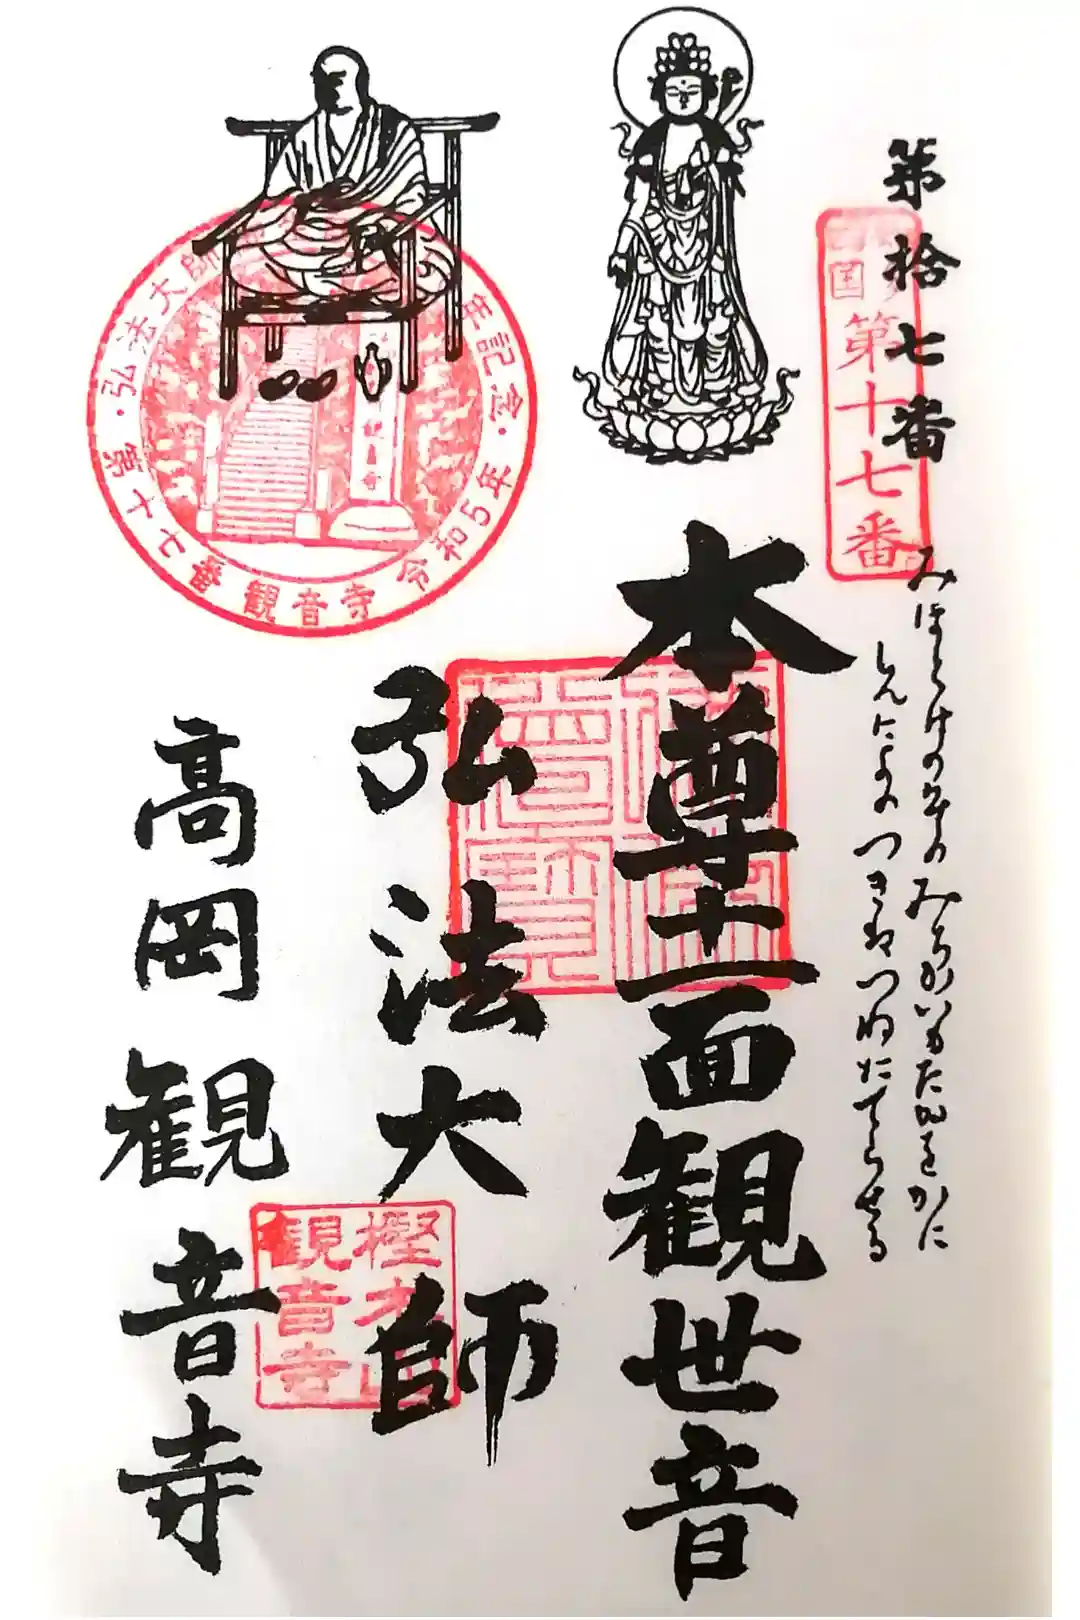 第拾七番
第十七番
みほとけのそのみちかいのたかをかに
しんによのつきはつねにてらせる
本尊十一面観世音
弘法大師
高岡観音寺
弘法大師
年記念・
第十七番 観音寺 令和5年
樫木山
観音寺